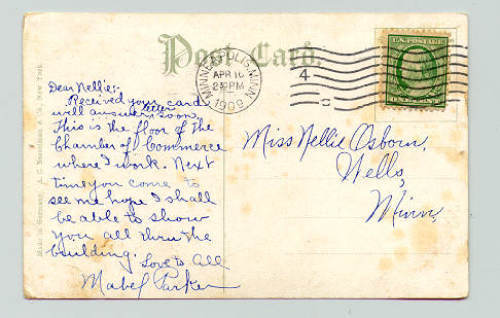 Post Card.
MINNEAPOLIS, MINN.
APR 16
2 PM
1909
4
U.S. POSTAGE
ONE CENT
Dear Nellie:-
Received your card
will answer letter soon.
This is the floor of the
Chamber of Commerce
where I work. Next
time you come to
see me hope I shall
be able to show
you all thru the
building.
Love to All
Mabel Parker
Miss Nellie Osborn,
Wells,
Minn.
Made in Germany. A. C. & Co., New York.